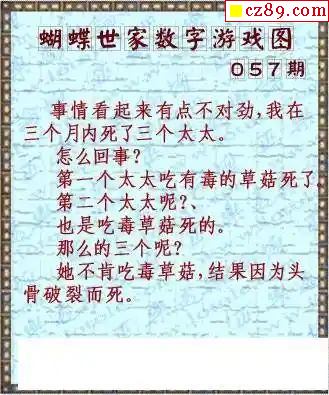 cz89.com
蝴蝶世家数字游戏图
057期
事情看起来有点不对劲,我在
三个月内死了三个太太。
怎么回事?
第一个太太吃有毒的草菇死了。
第二个太太呢?、
也是吃毒草菇死的。
那么的三个呢?
她不肯吃毒草菇,结果因为头
骨破裂而死。